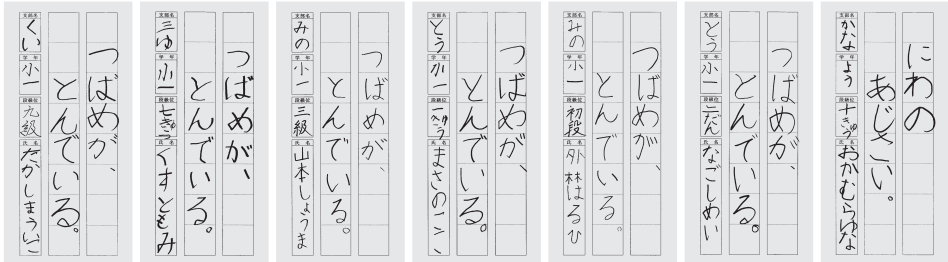 つばめが、
とんでいる。
支部名 くい 学年 小一 段級位 九級 氏名 たかしまういこ
つばめが、
とんでいる。
支部名 三ゆ 学年 小一 段級位 七きゅう 氏名 くすともみ
つばめが、
とんでいる。
支部名 みの 学年 小一 段級位 三級 氏名 山本しょうま
つばめが、
とんでいる。
支部名 とう 学年 小一 段級位 氏名 まさのここ
つばめが、
とんでいる。
支部名 みの 学年 小一 段級位 初段 氏名 外林はるひ
つばめが、
とんでいる。
支部名 とう 学年 小一 段級位 二だん 氏名 なごしめい
にわの
あじさい。
支部名 かな 学年 よう 段級位 十きゅう 氏名 おかむらゆな